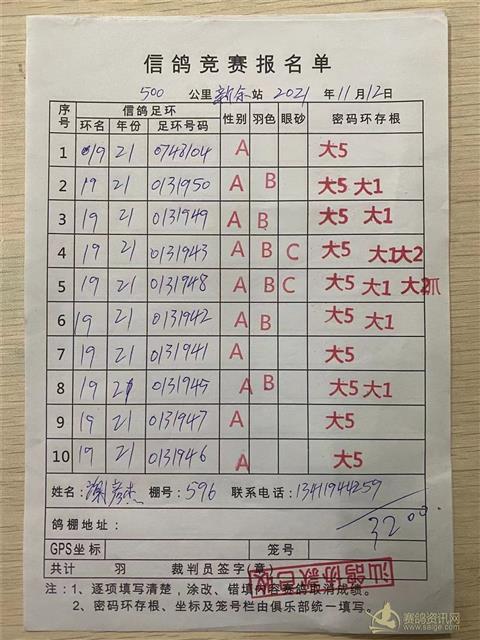 信鸽竞赛报名单
500 公里 新余 站 2021 年 11 月 12 日
序号 信鸽足环 性别 羽色 眼砂 密码环存根
环名 年份 足环号码
1 19 21 0748104 A 大5
2 19 21 0131950 A B 大5 大1
3 19 21 0131949 A B 大5 大1
4 19 21 0131943 A B C 大5 大1大2
5 19 21 0131948 A B C 大5 大1 大2爪
6 19 21 0131942 A B 大5 大1
7 19 21 0131941 A 大5
8 19 21 0131945 A B 大5 大1
9 19 21 0131947 A 大5
10 19 21 0131946 A 大5
姓名: 谢彦杰 棚号: 596 联系电话: 13411944259
鸽棚地址: 3200
GPS坐标 笼号
共计 羽 裁判员签字(章)
汕鸽协款已收
注:1、逐项填写清楚,涂改、错填内容赛鸽取消成绩。
2、密码环存根、坐标及笼号栏由俱乐部统一填写。
赛鸽资讯网
www.saige.com